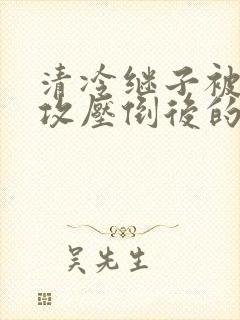 清冷继子被
攻壓倒後的
吴先生